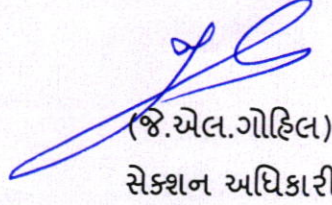 (જે.એલ.ગોહિલ)
સેક્શન અધિકારી